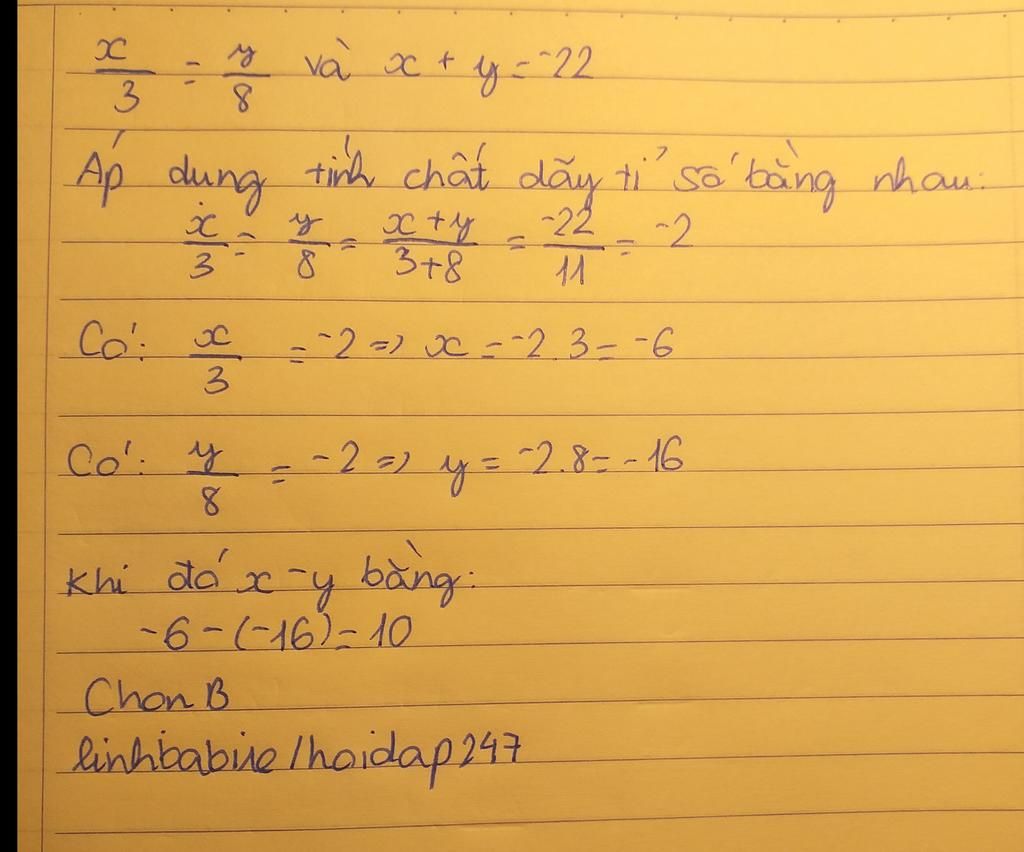 x/3 = y/8 và x + y = -22
Áp dụng tính chất dãy tỉ số bằng nhau:
x/3 = y/8 = x+y/3+8 = -22/11 = -2
Có: x/3 = -2 => x = -2.3 = -6
Có: y/8 = -2 => y = -2.8 = -16
Khi đó x - y bằng:
-6 - (-16) = 10
Chon B
linhbabiie/hoidap247